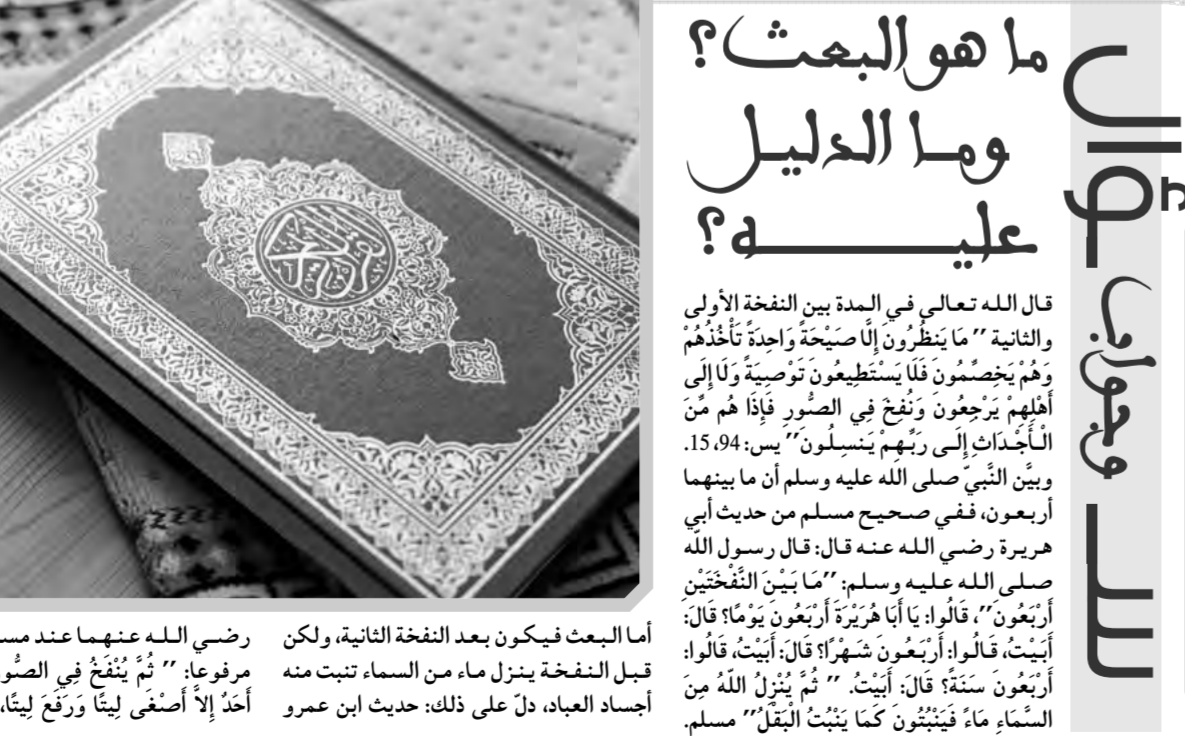 سؤال وجواب
ما هو البعث؟
وما الدليل
عليه؟
قال الله تعالى في المدة بين النفخة الأولى
والثانية ’’ مَا يَنظُرُونَ إِلَّا صَيْحَةً وَاحِدَةً تَأْخُذُهُمْ
وَهُمْ يَخِصِّمُونَ فَلَا يَسْتَطِيعُونَ تَوْصِيَةً وَلَا إِلَى
أَهْلِهِمْ يَرْجِعُونَ وَنُفِخَ فِي الصُّورِ فَإِذَا هُم مِّنَ
الْأَجْدَاثِ إِلَى رَبِّهِمْ يَنسِلُونَ’’ يس: 94، 15.
وبيَّن النَّبيّ صلى الله عليه وسلم أن ما بينهما
أربعون، ففي صحيح مسلم من حديث أبي
هريرة رضي الله عنه قال: قال رسول اللّه
صلى الله عليه وسلم: ’’مَا بَيْنَ النَّفْخَتَيْنِ
أَرْبَعُونَ’’، قَالُوا: يَا أَبَا هُرَيْرَةَ أَرْبَعُونَ يَوْمًا؟ قَالَ:
أَبَيْتُ، قَالُوا: أَرْبَعُونَ شَهْرًا؟ قَالَ: أَبَيْتُ، قَالُوا:
أَرْبَعُونَ سَنَةً؟ قَالَ: أَبَيْتُ. ’’ ثُمَّ يُنْزِلُ اللّهُ مِنَ
السَّمَاءِ مَاءً فَيَنْبُتُونَ كَمَا يَنْبُتُ الْبَقْلُ’’ مسلم.
أما البعث فيكون بعد النفخة الثانية، ولكن
قبل النفخة ينزل ماء من السماء تنبت منه
أجساد العباد، دلّ على ذلك: حديث ابن عمرو
رضي الله عنهما عند
مرفوعا: ’’ ثُمَّ يُنْفَخُ فِي
أَحَدٌ إِلاَّ أَصْغَى لِيتًا وَرَفَعَ لِيتًا،